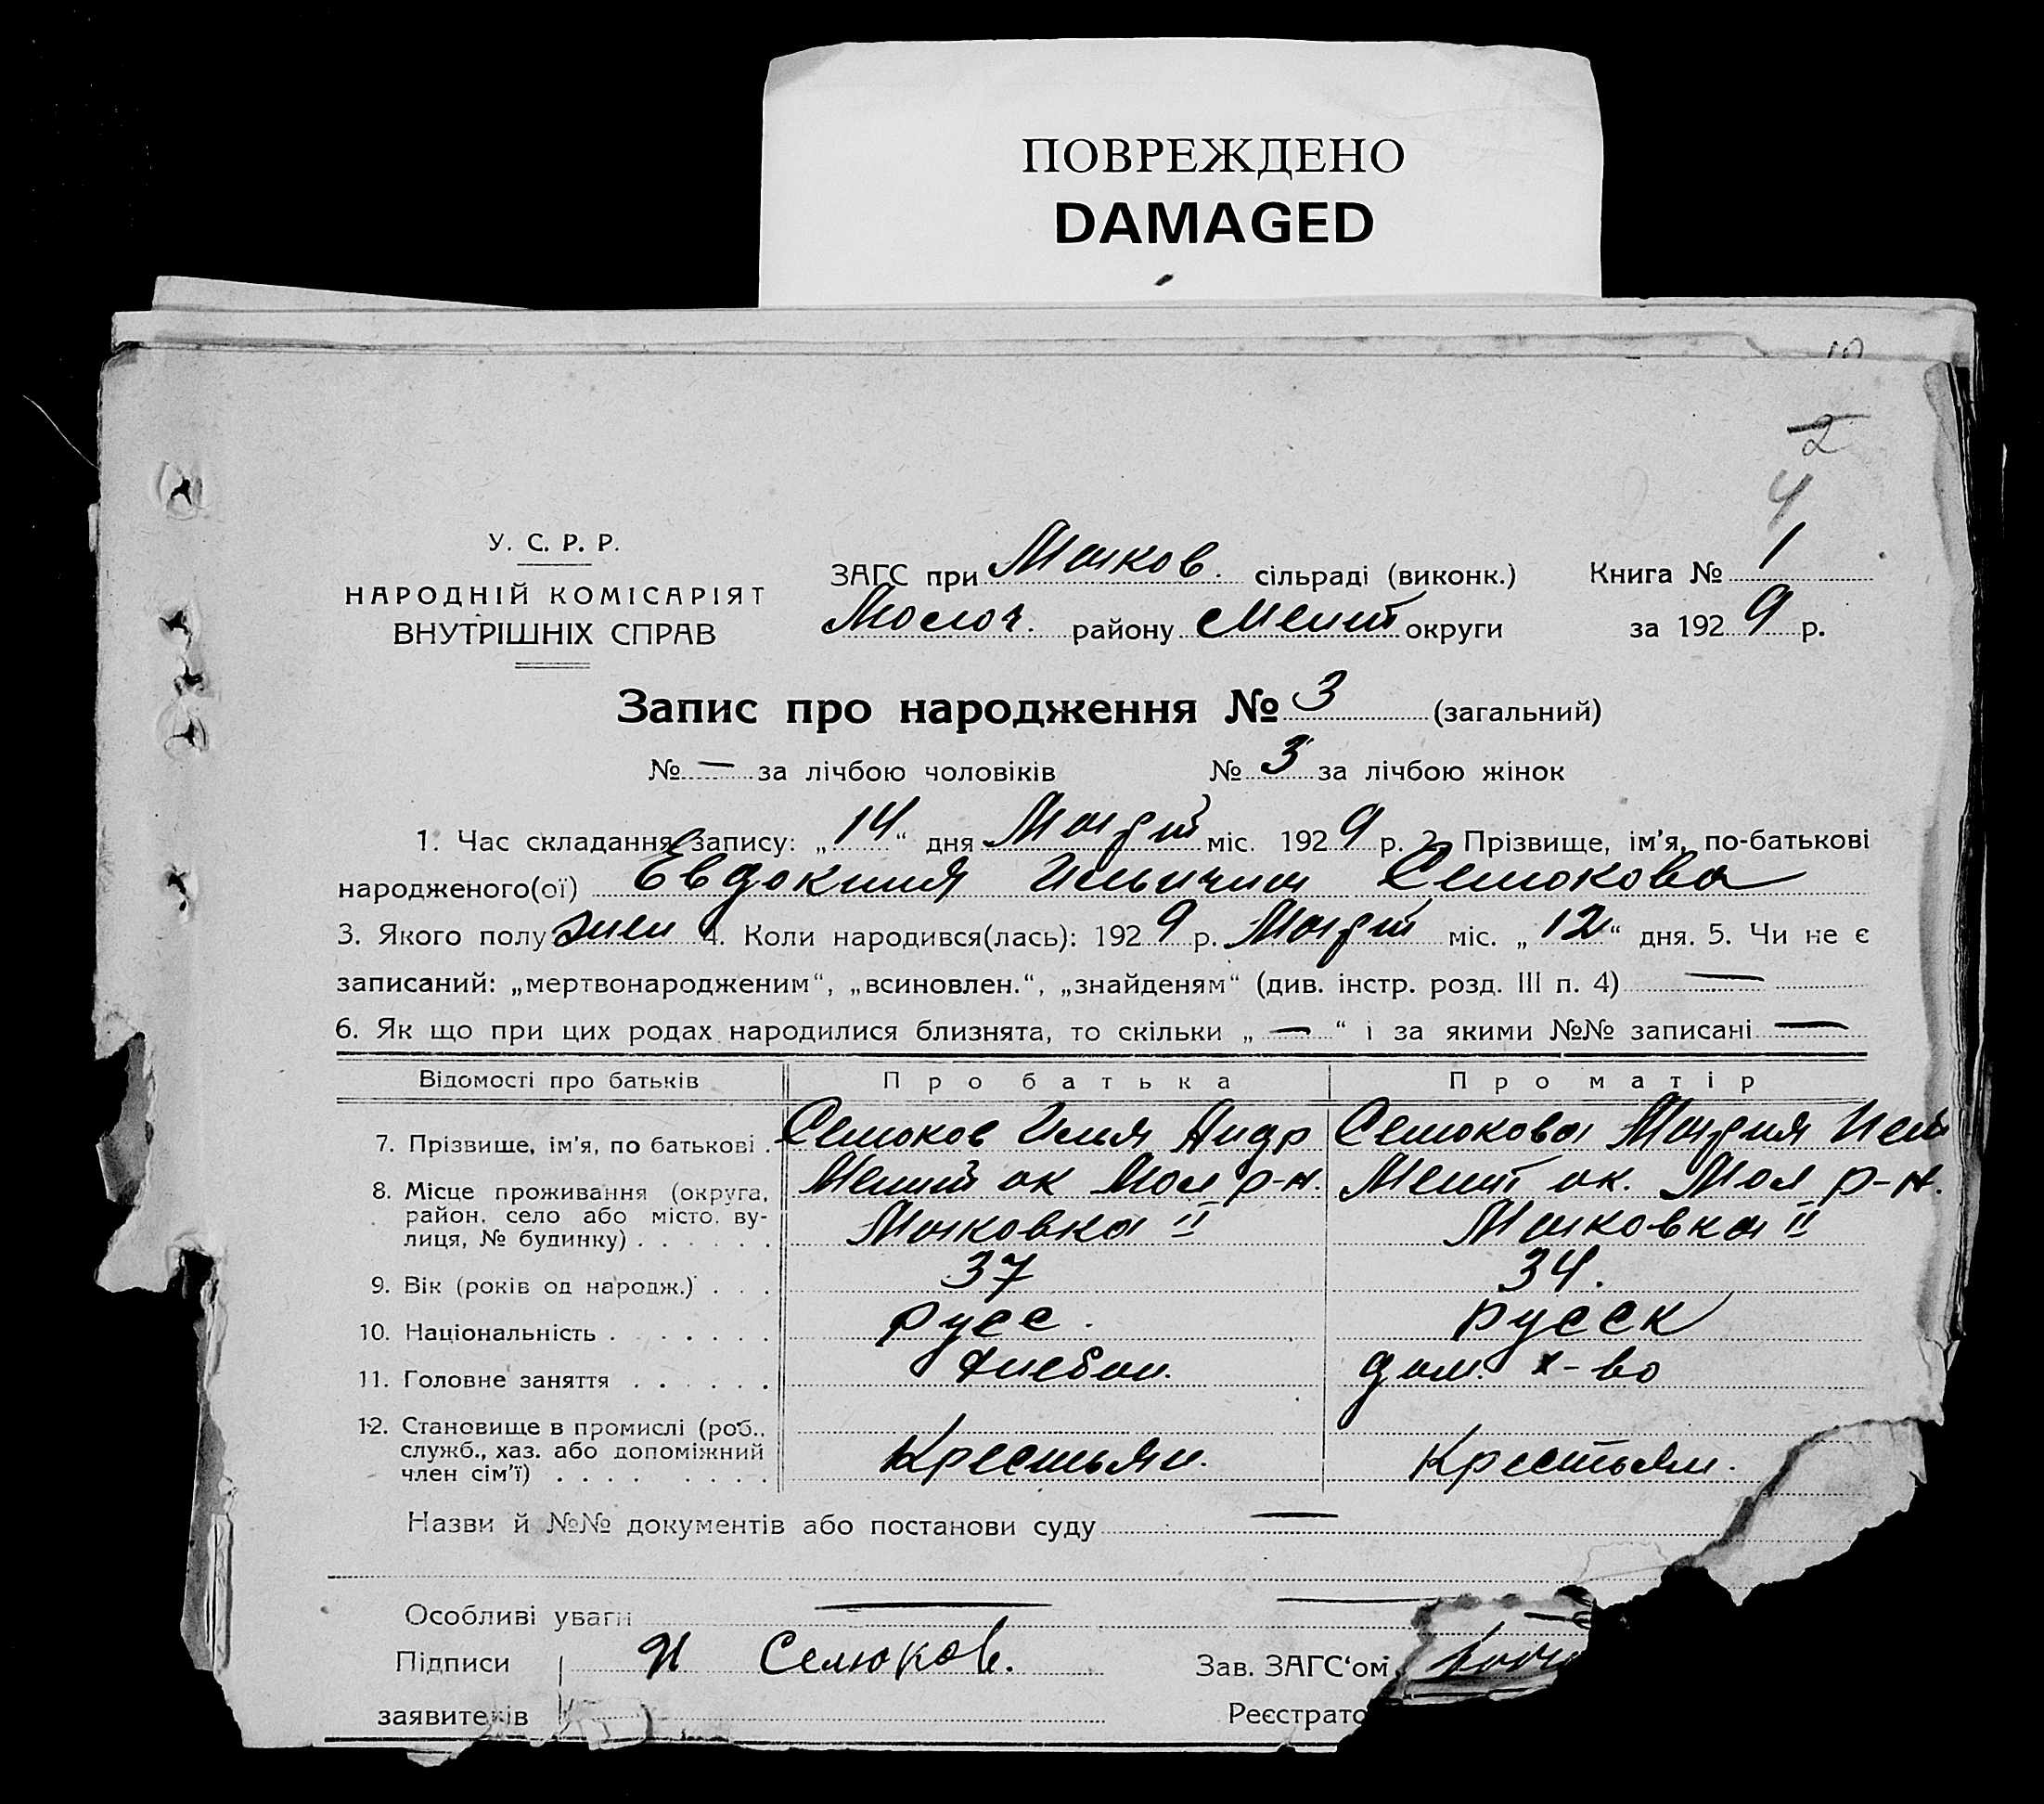 ПОВРЕЖДЕНО
DAMAGED
2
4
У. С. Р. Р.
НАРОДНІЙ КОМІСАРІЯТ
ВНУТРІШНІХ СПРАВ
ЗАГС при Маков. сільраді (виконк.) Книга № 1
Молоч. району Мелит округи за 1929 р.
Запис про народження № 3 (загальний)
№ — за лічбою чоловіків № 3 за лічбою жінок
1. Час складання запису: „14“ дня Март міс. 1929 р. 2. Прізвище, ім'я, по-батькові
народженого(ої) Евдокия Ильична Селюкова
3. Якого полу жен 4. Коли народився(лась): 1929 р. Март міс. „12“ дня. 5. Чи не є
записаний: „мертвонародженим“, „всиновлен.“, „знайденям“ (див. інстр. розд. III п. 4) —
6. Як що при цих родах народилися близнята, то скільки „—“ і за якими №№ записані —
Відомості про батьків Про батька Про матір
7. Прізвище, ім'я, по батькові . Селюков Илья Андр Селюкова Мария
8. Місце проживання (округа, район, село або місто, вулиця, № будинку) . . . . . . Мелит ок Мол р-н. Маковка II Мелит ок. Мол р-н. Маковка II
9. Вік (років од народж.) . . . 37 34.
10. Національність . . . . . . . русс. русск
11. Головне заняття . . . . . . хлебоп. дом. х-во
12. Становище в промислі (роб., служб., хаз. або допоміжний член сім'ї) . . . . . . . . Крестьян. Крестьян.
Назви й №№ документів або постанови суду —
Особливі уваги —
Підписи И Селюков. Зав. ЗАГС‘ом
заявителів Реєстрато